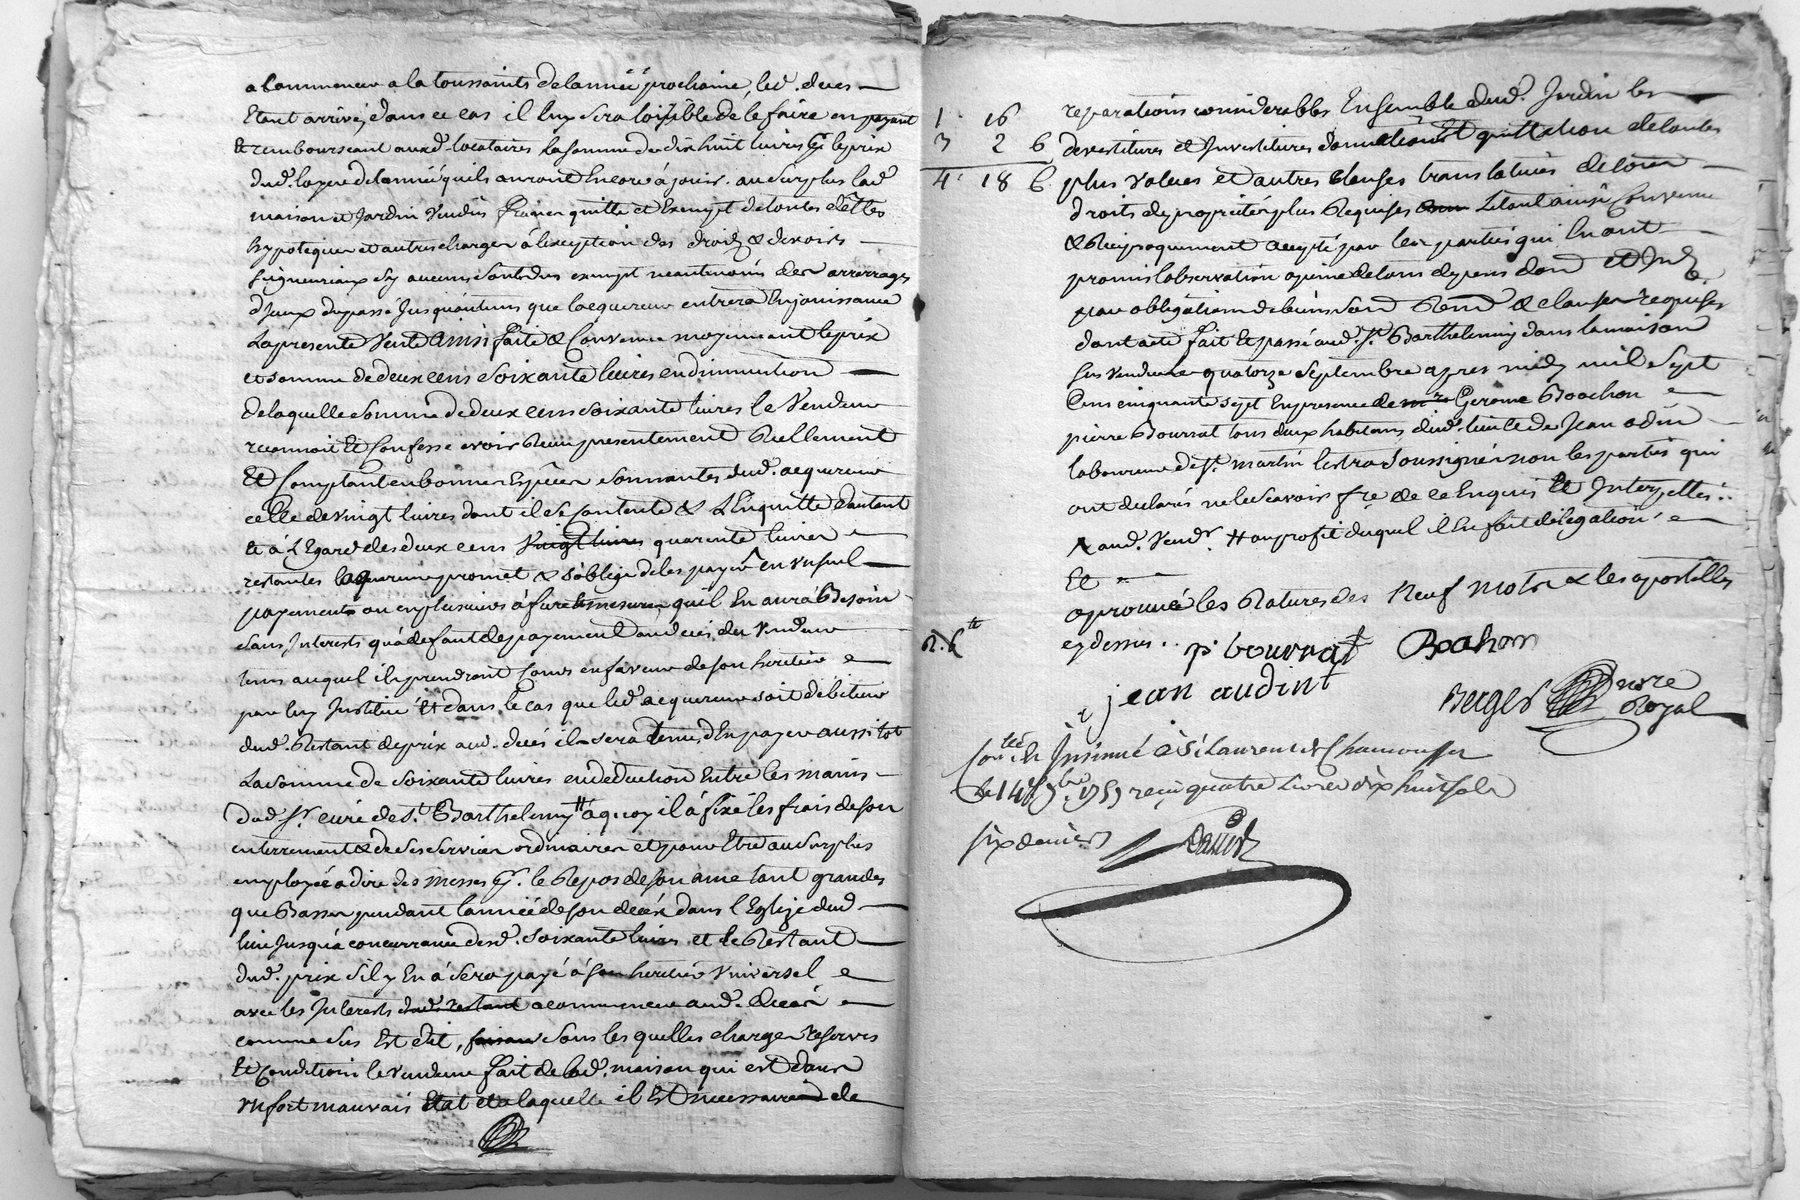 a Commencer a la toussaints de lannéé prochaine, led. deces
Etant arrivé, dans ce cas il luy sera loisible de le faire en payant
Et remboursant auxd. locataires la somme de dix huit livres pr le prix
dud. loyer de lannéé quils auront Encore à jouir. au surplus lad.
maison et Jardin Vendus franc quitte et Exempt de toutes dettes
hypoteques et autres charges à lexception des droits & devoirs
seigneuriaux sy aucuns sont dus exempt neantmoins des arrerages
d'Iceux du passé Jusquaintems que lacquereur entrera En jouissance
La presente Vente Ainsi faite & Convenue moyennant le prix
et somme de deux cens soixante livres en diminution
de laquelle somme de deux cens soixante livres le Vendeur
reconnoit Et Confesse avoir Reçu presentement Réellement
Et Comptant en bonnes Espèces sonnantes dud. acquereur
celle de vingt livres dont il se Contente & L'Enquitte d'autant
Et à L'Egard des deux cens vingt livres quarente livres
restantes lacquereur promet & s'oblige de les payer En un seul
payement ou en plusieurs à fur et mesure qu'il En aura Besoin
sans Interests quà defaut de payement au deces du Vendeur
tems auquel ils prendront Cours en faveur de son heritier
par luy Institué Et dans le cas que led. acquereur soit débiteur
dud. Restant de prix aud. decés il sera tenu d'En payer aussitot
La somme de soixante livres en deduction Entre les mains
dud. Sr. curé de St. Barthelemy # à quoy il à fixé les frais de son
enterrement & de ses services ordinaires et pour Etre au surplus
employéé a dire des messes pr. le Repos de son ame tant grandes
que Basses pendant lannéé de son decés dans l'Eglize dud.
lieu Jusqu'à concurrance desd. soixante livres et le Restant
dud. prix s'il y En à sera payé à son heritier Universel
avec les Interests dud. restant a commencer aud. decés
comme dis Est dit, sous les quelles charges reserves
Et Conditions le vendeur fait de lad. maison qui est dans
un fort mauvais Etat et a laquelle il Est necessaire de
1. 16
3 2 6
4. 18 6.
reparations considerables Ensemble dud. Jardin les
devestitures et Investitures donnations Et quittation de toutes
plus values et autres clauses translatives de tous
droits de proprieté plus Requises Letout ainsi Convenu
& Reciproquement accepté par les parties qui En ont
promis l'observation a peine de tous depens dom et Int
par obligation de biens soum Renon & clauses requises
dont acte fait Et passé aud. St. Barthelemy dans la maison
sus vendue le quatorze septembre apres midy mil sept
Cens cinquante sept En presence de Gerome Boachon
pierre Bourrat tous deux habitans dud. lieu & de Jean odin
laboureur de St. martin lestra soussignés non les parties qui
ont declarés ne le sçavoir fre de ce Enquis Et Interpellés:.
aud. Vendr. # au profit duquel il En fait délégation
Et
aprouvé les Ratures des Neuf mots & les apostilles
cy dessus..
p. bourrat Boachon
jean audin
Berger nore
Royal
Conlé & Insinué à St Laurent de Chamousset
Le 14e 7bre 1757 reçu quatre Livres dix huit sols
six deniers